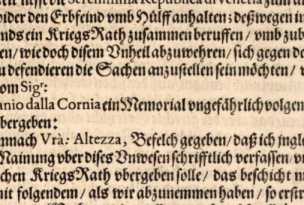 der den Erbfeind vmb Hülff anhalten: deßwegen
nds ein KriegsRath zusammen beruffen / vmb zube
en / wie doch disem Vnheil abzuwehren / sich gegen de
u defendieren die Sachen anzustellen sein möchten /
om Sigr:
anio dalla Cornia ein Memorial vngefährlich volgen
bergeben:
nmach Vrà: Altezza, Befelch gegeben / daß ich ingle
Mainung vber dises Vnwesen schrifftlich verfassen /
chen KriegsRath vbergeben solle / das beschicht
nit folgendem / als wir abzunemmen haben / so